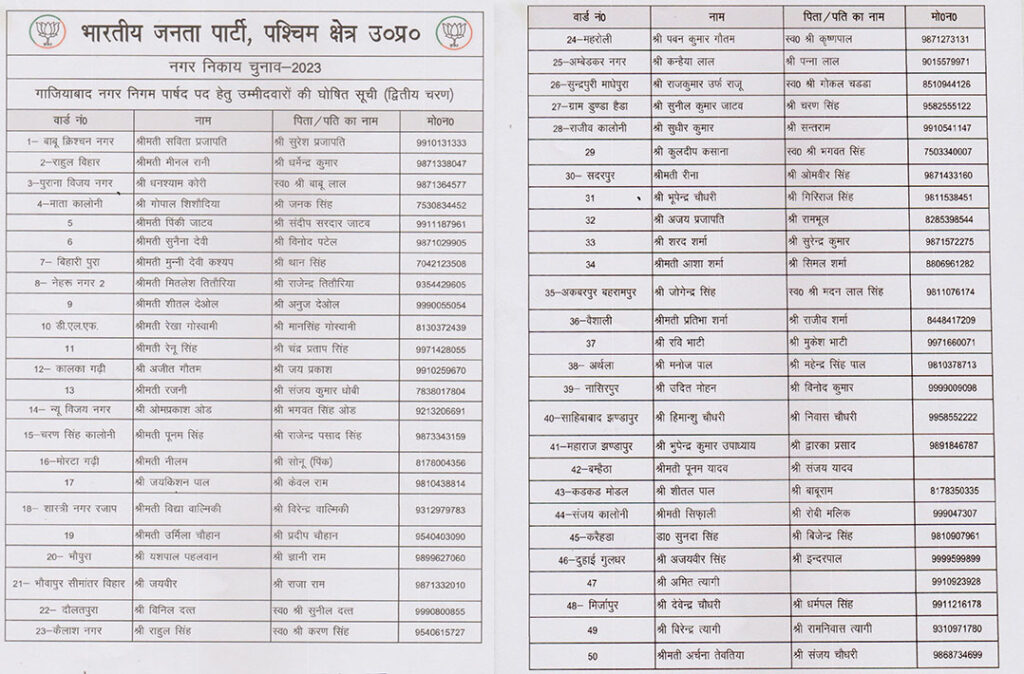 भारतीय जनता पार्टी, पश्चिम क्षेत्र उ०प्र०
नगर निकाय चुनाव–2023
गाजियाबाद नगर निगम पार्षद पद हेतु उम्मीदवारों की घोषित सूची (द्वितीय चरण)
वार्ड नं० नाम पिता/पति का नाम मो०न०
1– बाबू क्रिश्चन नगर श्रीमती सविता प्रजापति श्री सुरेश प्रजापति 9910131333
2–राहुल विहार श्रीमती मीनल रानी श्री धर्मेन्द्र कुमार 9871338047
3–पुराना विजय नगर श्री धनश्याम कोरी स्व० श्री बाबू लाल 9871364577
4–माता कालोनी श्री गोपाल शिशौदिया श्री जनक सिंह 7530834452
5 श्रीमती पिंकी जाटव श्री संदीप सरदार जाटव 9911187961
6 श्रीमती सुनैना देवी श्री विनोद पटेल 9871029905
7– बिहारी पुरा श्रीमती मुन्नी देवी कश्यप श्री थान सिंह 7042123508
8– नेहरू नगर 2 श्रीमती मितलेश तितौरिया श्री राजेन्द्र तितौरिया 9354429605
9 श्रीमती शीतल देओल श्री अनुज देओल 9990055054
10 डी.एल.एफ. श्रीमती रेखा गोस्वामी श्री मानसिंह गोस्वामी 8130372439
11 श्रीमती रेनू सिंह श्री चंद्र प्रताप सिंह 9971428055
12– कालका गढ़ी श्री अजीत गौतम श्री जय प्रकाश 9910259670
13 श्रीमती रजनी श्री संजय कुमार धोबी 7838017804
14– न्यू विजय नगर श्री ओमप्रकाश ओड श्री भगवत सिंह ओड 9213206691
15–चरण सिंह कालोनी श्रीमती पूनम सिंह श्री राजेन्द्र पसाद सिंह 9873343159
16–मोरटा गढ़ी श्रीमती नीलम श्री सोनू (पिंक) 8178004356
17 श्री जयकिशन पाल श्री केवल राम 9810438814
18– शास्त्री नगर रजाप श्रीमती विद्या वाल्मिकी श्री विरेन्द वाल्मिकी 9312979783
19 श्रीमती उर्मिला चौहान श्री प्रदीप चौहान 9540403090
20– भौपुरा श्री यशपाल पहलवान श्री ज्ञानी राम 9899627060
21– भौवापुर सीमांतर विहार श्री जयवीर श्री राजा राम 9871332010
22– दौलतपुरा श्री विनिल दत्त स्व० श्री सुनील दत्त 9990800855
23–कैलाश नगर श्री राहुल सिंह स्व० श्री करण सिंह 9540615727
वार्ड नं० नाम पिता/पति का नाम मो०न०
24–महरोली श्री पवन कुमार गौतम स्व० श्री कृष्णपाल 9871273131
25–अम्बेडकर नगर श्री कन्हैया लाल श्री पन्ना लाल 9015579971
26–सुन्दपुरी माधेपुरा श्री राजकुमार उर्फ राजू स्व० श्री गोकल चडडा 8510944126
27–ग्राम डुण्डा हैडा श्री सुनील कुमार जाटव श्री चरण सिंह 9582555122
28–राजीव कालोनी श्री सुधीर कुमार श्री सन्तराम 9910541147
29 श्री कुलदीप कसाना स्व० श्री भगवत सिंह 7503340007
30– सदरपुर श्रीमती रीना श्री ओमवीर सिंह 9871433160
31 श्री भूपेन्द्र चौधरी श्री गिरिराज सिंह 9811538451
32 श्री अजय प्रजापति श्री रामभूल 8285398544
33 श्री शरद शर्मा श्री सुरेन्द्र कुमार 9871572275
34 श्रीमती आशा शर्मा श्री सिमल शर्मा 8806961282
35–अकबरपुर बहरामपुर श्री जोगेन्द्र सिंह स्व० श्री मदन लाल सिंह 9811076174
36–वैशाली श्रीमती प्रतिभा शर्मा श्री राजीव शर्मा 8448417209
37 श्री रवि भाटी श्री मुकेश भाटी 9971660071
38– अर्थला श्री मनोज पाल श्री महेन्द्र सिंह पाल 9810378713
39– नासिरपुर श्री उदित मोहन श्री विनोद कुमार 9999009098
40–साहिबाबाद झण्डापुर श्री हिमान्शु चौधरी श्री निवास चौधरी 9958552222
41–महाराज झण्डापुर श्री भुपेन्द्र कुमार उपाध्याय श्री द्वारका प्रसाद 9891846787
42–बम्हैठा श्रीमती पूनम यादव श्री संजय यादव
43–कडकड मोडल श्री शीतल पाल श्री बाबूराम 8178350335
44–संजय कालोनी श्रीमती सिफाली श्री रोबी मलिक 999047307
45–करैहडा डा० सुनदा सिंह श्री बिजेन्द्र सिंह 9810907961
46–दुहाई गुलधर श्री अजयवीर सिंह श्री इन्दरपाल 9999599899
47 श्री अमित त्यागी 9910923928
48– मिर्जापुर श्री देवेन्द्र चौधरी श्री धर्मपल सिंह 9911216178
49 श्री विरेन्द्र त्यागी श्री रामनिवास त्यागी 9310971780
50 श्रीमती अर्चना तेवतिया श्री संजय चौधरी 9868734699